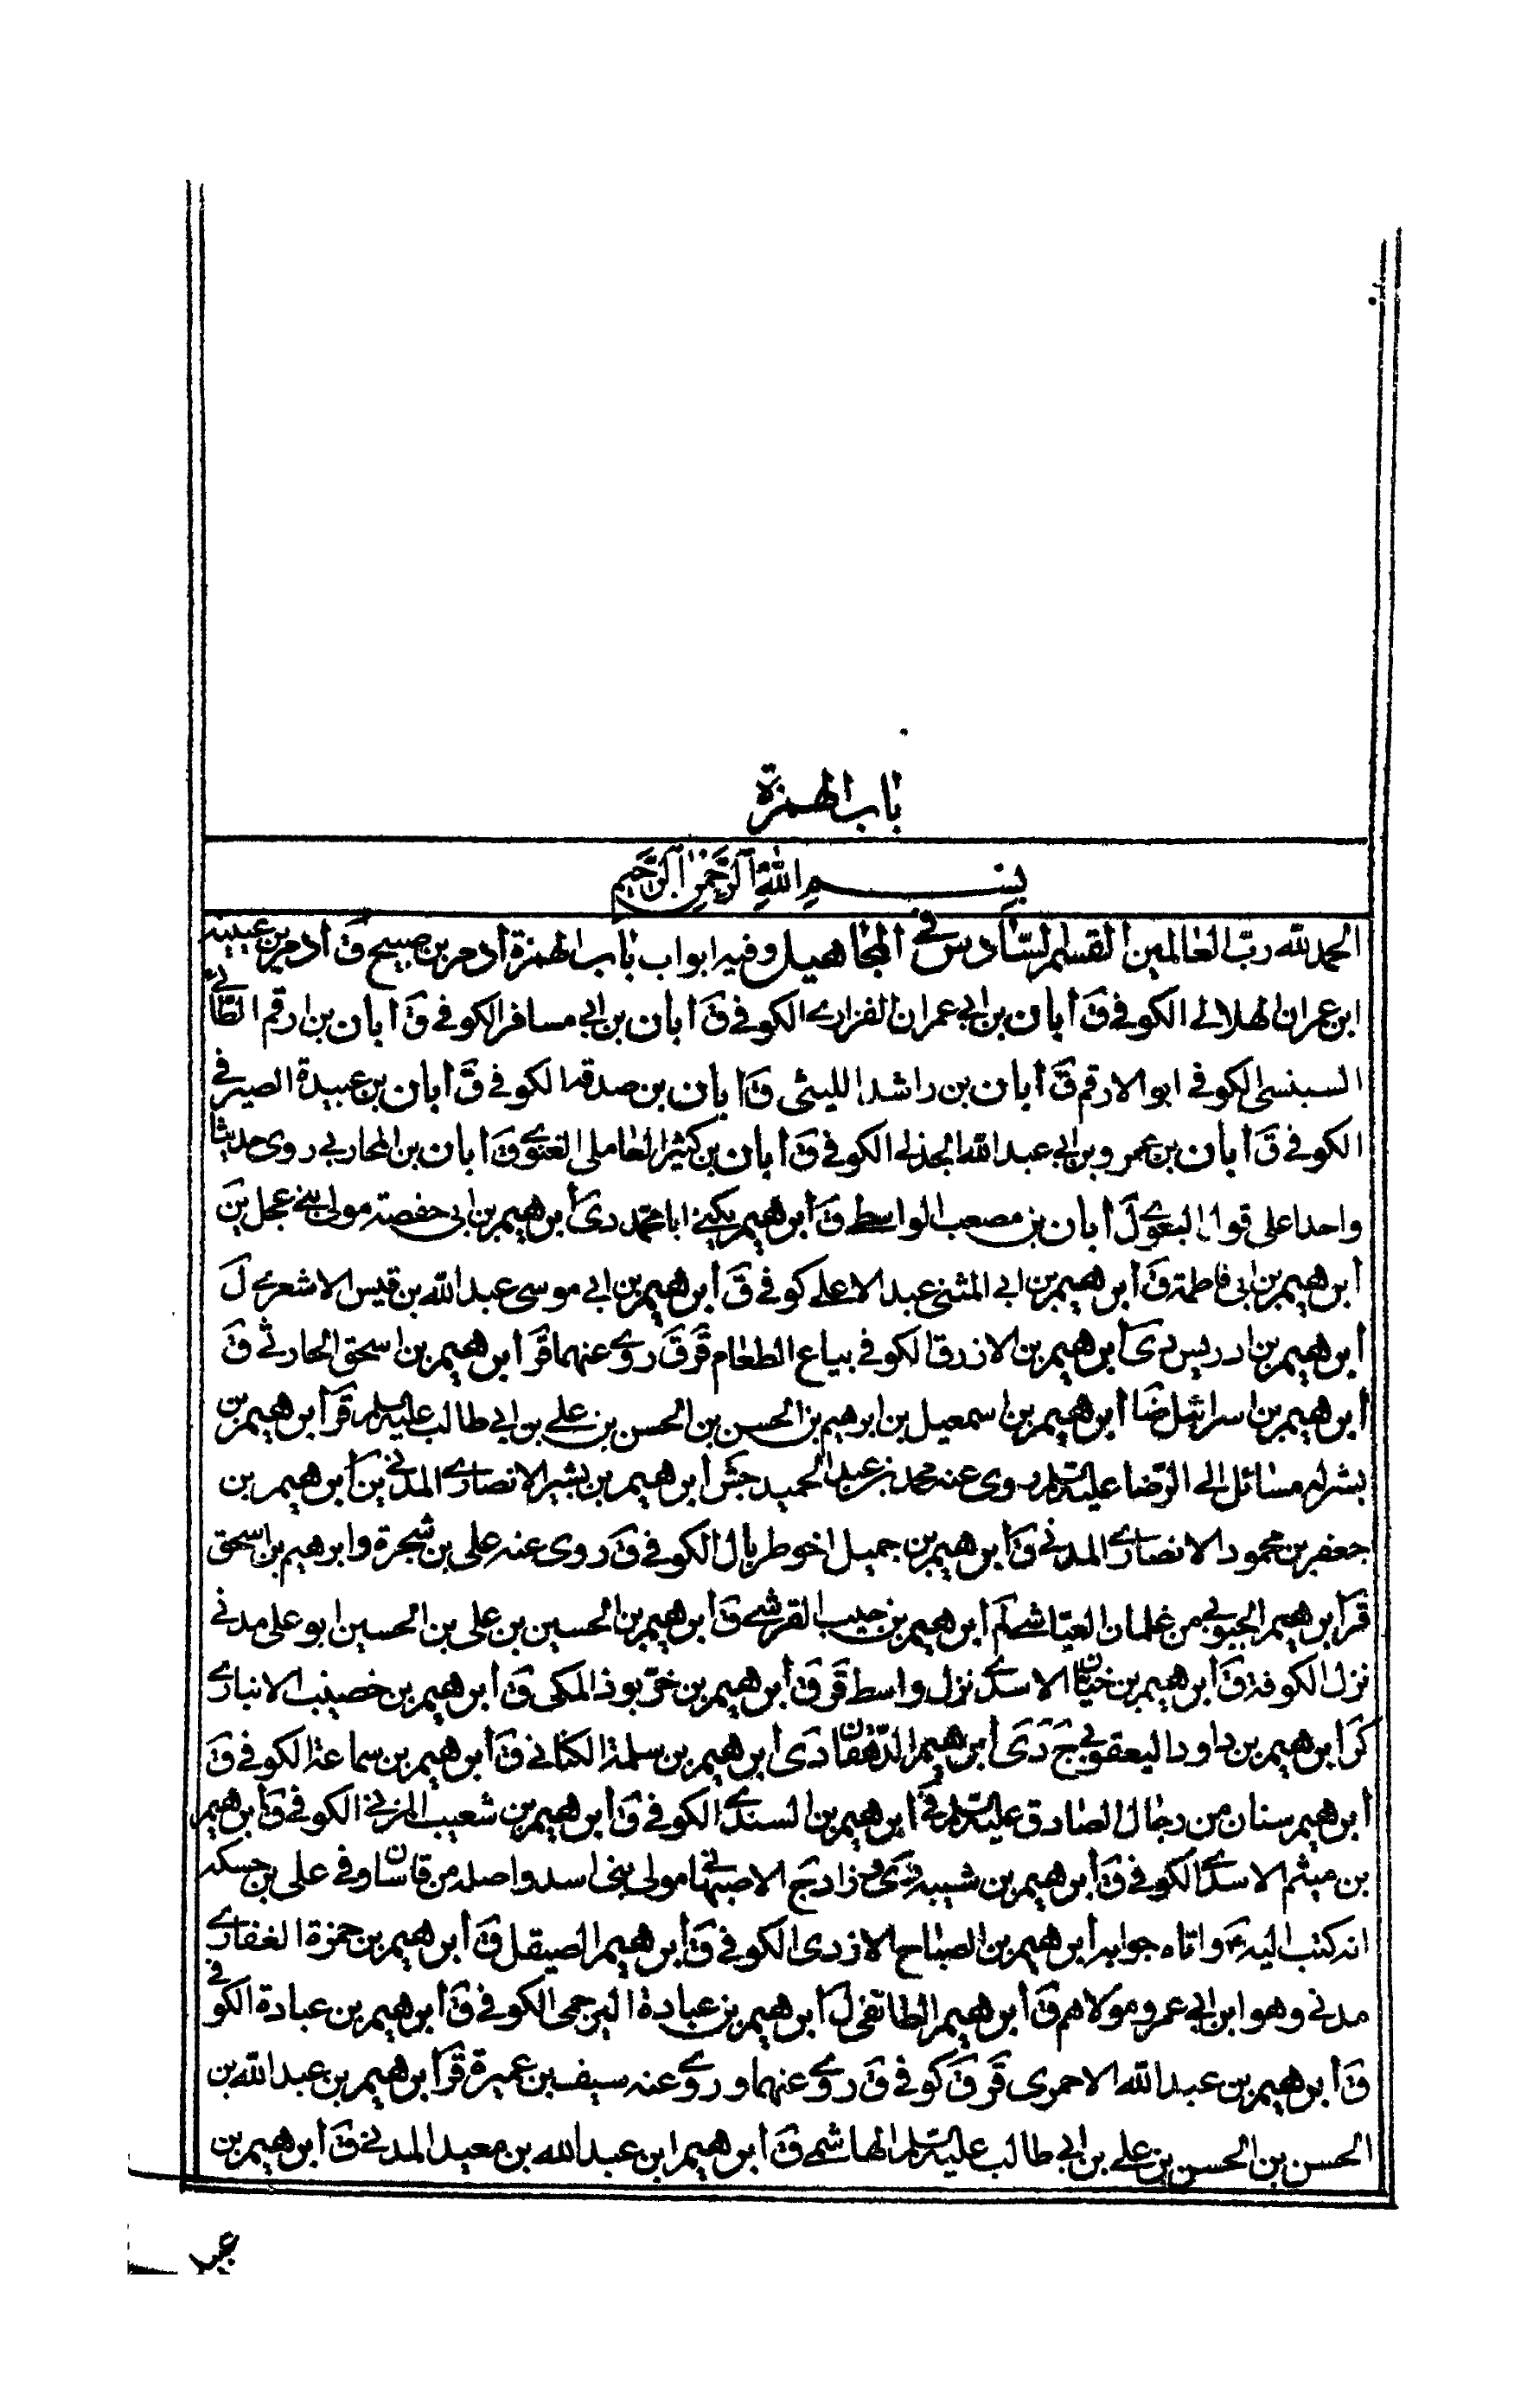 باب الهمزة
بسم الله الرحمن الرحيم
الحمد لله رب العالمين القسم السادس في المجاهيل وفيه ابواب باب الهمزة أدم بن صبيح ق أدم بن عيينه
ابن عمران الهلالي الكوفي ق أبان بن ابي عمران الفزاري الكوفي ق أبان بن ابي مسافر الكوفي ق أبان بن ارقم الطائي
السبنسى الكوفي ابو الارقم ق أبان بن راشد الليثي ق أبان بن صدقه الكوفي ق أبان بن عبيدة الصيرفي
الكوفي ق أبان بن عمرو بن ابي عبد الله الجذلي الكوفي ق أبان بن كثير العاملى الغنوي ق أبان بن المحاربي روى حديثا
واحدا على قول البغوي ل أبان بن مصعب الواسطي ق أبرهيم يكنى ابا محمد دى أبرهيم بن ابى حفصة مولى بني عجل ين
أبرهيم بن ابى فاطمة ق أبرهيم بن ابي المثنى عبد الاعلى كوفي ق أبرهيم بن ابي موسى عبد الله بن قيس الاشعري ل
أبرهيم بن ادريس دى أبرهيم بن الازرق الكوفي بياع الطعام قر ق روى عنهما قر أبرهيم بن اسحق الحارثي ق
أبرهيم بن اسرائيل ضا أبرهيم بن اسمعيل بن ابرهيم بن الحسن بن الحسن بن علي بن ابي طالب عليه السلام قر أبرهيم بن
بشر له مسائل الى الرضا عليه السلام روى عنه محمد بن عبد الحميد جش أبرهيم بن بشير الانصاري المدني ين أبرهيم بن
جعفر بن محمود الانصاري المدني ق أبرهيم بن جميل اخو طربال الكوفي ق روى عنه على بن شجرة وابرهيم بن اسحق
قر أبرهيم الحبوبي من غلمان العياشي لم أبرهيم بن حبيب القرشي ق أبرهيم بن الحسين بن على بن الحسين ابو على مدني
نزل الكوفة ق أبرهيم بن حيان الاسدي نزل واسط قر ق أبرهيم بن خربوذ المكى ق أبرهيم بن خصيب الانباري
كر أبرهيم بن داود اليعقوبي ج دى أبرهيم الدهقان دى أبرهيم بن سلمة الكناني ق أبرهيم بن سماعة الكوفي ق
أبرهيم سنان من رجال الصادق عليه السلام أبرهيم بن السندي الكوفي ق أبرهيم بن شعيب المزني الكوفي ق أبرهيم
بن ميثم الاسدي الكوفي ق أبرهيم بن شيبه دى زاد ج الاصبهاني مولى بنى اسد واصله من قاسان وفي على بن حسكه
انه كتب اليه واتاه جوابه أبرهيم بن الصباح الازدى الكوفي ق أبرهيم الصيقل ق أبرهيم بن حمزة الغفاري
مدني وهو ابن ابي عمرو مولاهم ق أبرهيم الطائفى ل أبرهيم بن عبادة البرجمى الكوفي ق أبرهيم بن عبادة الكوفي
ق أبرهيم بن عبد الله الاحمرى قر ق كوفي ق روى عنهما وروى عنه سيف بن عميرة قر أبرهيم بن عبد الله بن
الحسن بن الحسن بن علي بن ابي طالب عليه السلام الهاشمي ق أبرهيم ابن عبد الله بن معبد المدني ق أبرهيم بن